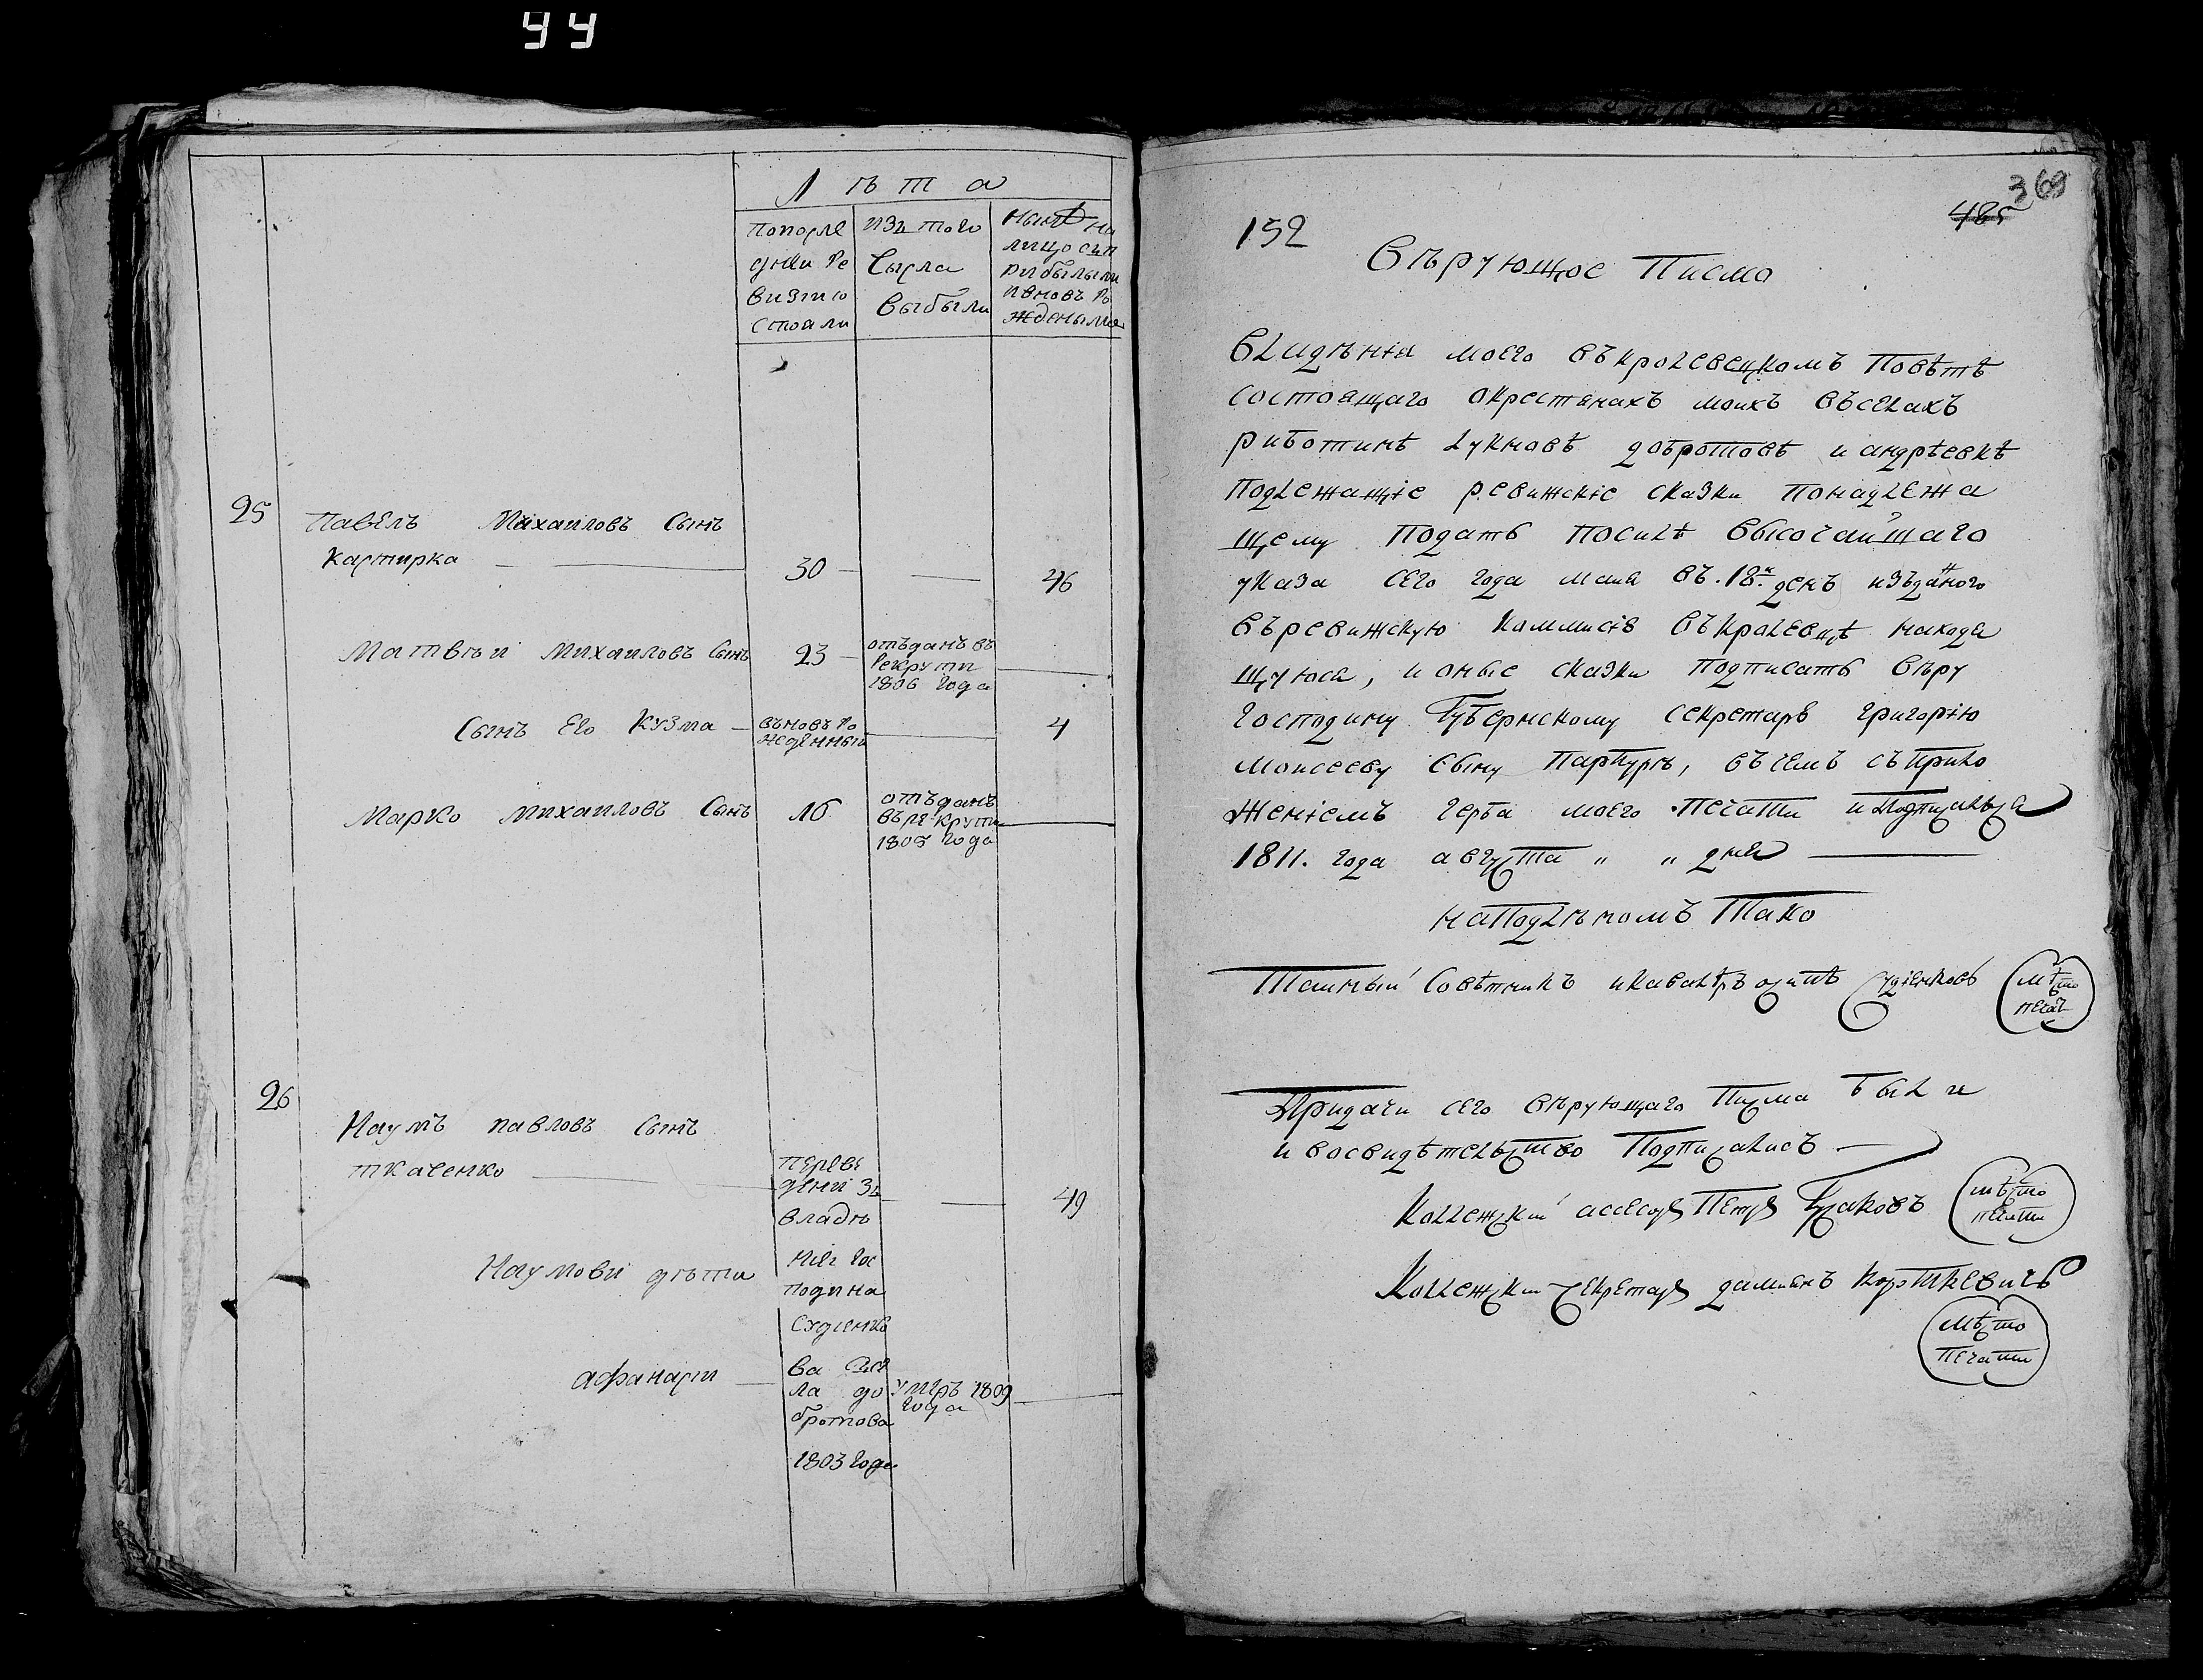 44
Лѣта
попосле
дней ре
визии
стояли
изъ того
числа
выбыли
нынѣ на
лицо съп
рибылыми
ивновъ ро
жденыма
25
Павелъ Михаиловъ Сынъ
Кастирка 30 46
Матвѣи Михаиловъ Сынъ 23
отъданъ въ
рекрути
1806 года
Сынъ Его Кузма
въновъ ро
жеденный
4
Марко Михаиловъ Сынъ 16
отъданъ
въре крути
1805 года
26
Наумъ павловъ сынъ
ткаченко
переве
дени зъ
владѣ
49
Наумови дѣти
нїя гос
подина
Судиенко
афанасии
ва
ла до
бротова
1803 годи
умеръ 1809
года
369
485
152
Вѣрующое Писмо
Влидѣнїя моего въ кролевецкомъ повѣтѣ
состоящаго окрестянахъ моихъ въселахъ
риботинѣ лукновѣ добротовѣ и андрѣевкѣ
подлежащїе ревижскїе сказки понадлежа
щему подать посилѣ высочаишаго
указа сего года маия въ. 18.н день изъданого
въревижскую коммисїю въкролевцѣ находя
щуюся, и оные сказки подписать вѣру
господину губернскому секретарю григорїю
моисееву сыну парпурѣ, въ чемъ съприло
женїемъ герба моего печати и подписалься
1811. года августа „ „ дня
наподлѣномъ тако
Таиный совѣтникъ икавалѣръ осипъ судїенковъ
мѣсто
печать
Придачи сего вѣрующаго писма были
и восвидѣтельство подписались
Коллежский асесоръ Петръ Гусаковъ
мѣсто
печати
Коллежски секретаръ дамиянъ Короткевичь
мѣсто
печати